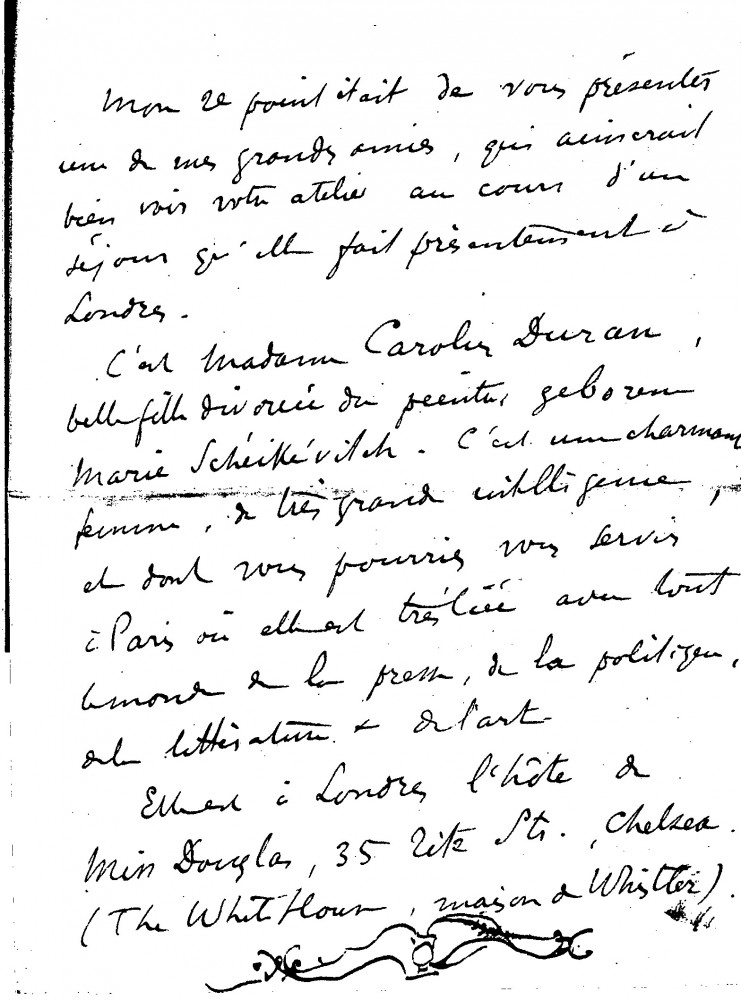 Mon 2e point était de vous présenter
une de mes grandes amies, qui aimerait
bien voir votre atelier au cours d'un
séjour qu'elle fait présentement à
Londres.
C'est Madame Carolus Duran,
belle fille divorcée du peintre, geborene
Marie Schéikévitch. C'est une charmante
femme, de très grande intelligence,
et dont vous pourriez vous servir
à Paris où elle est très liée avec tout
le monde de la presse, de la politique,
de la littérature & de l'art
Elle est à Londres l'hôte de
Miss Douglas, 35 Tite Str. Chelsea.
(The White House, maison de Whistler).